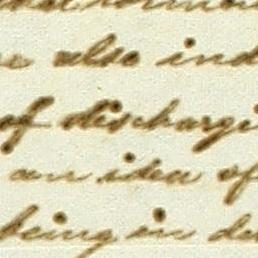 also ind
of dischargi
an idea of
being in de